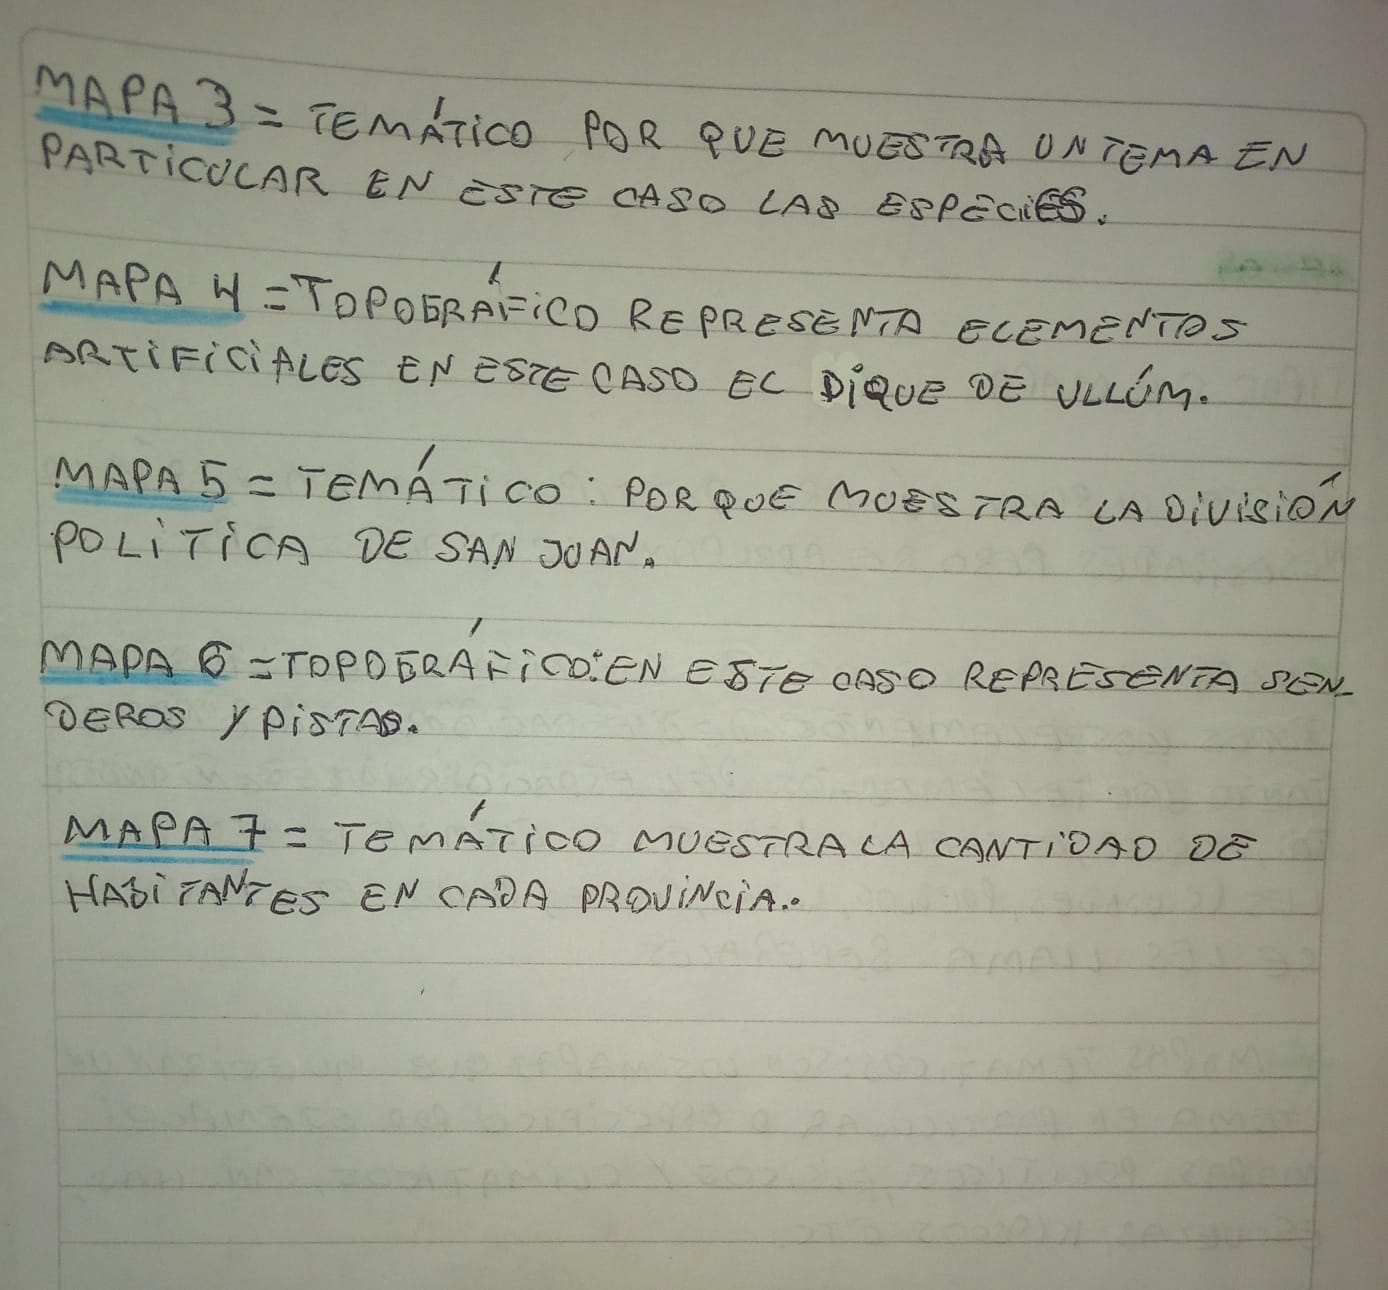 MAPA 3 = TEMÁTICO POR QUE MUESTRA UN TEMA EN
PARTICULAR EN ESTE CASO LAS ESPECIES.
MAPA 4 = TOPOGRÁFICO REPRESENTA ELEMENTOS
ARTIFICIALES EN ESTE CASO EL DIQUE DE ULLÚM.
MAPA 5 = TEMÁTICO: PORQUE MUESTRA LA DIVISIÓN
POLITICA DE SAN JUAN.
MAPA 6 = TOPOGRÁFICO: EN ESTE CASO REPRESENTA SEN-
DEROS Y PISTAS.
MAPA 7 = TEMÁTICO MUESTRA LA CANTIDAD DE
HABITANTES EN CADA PROVINCIA..